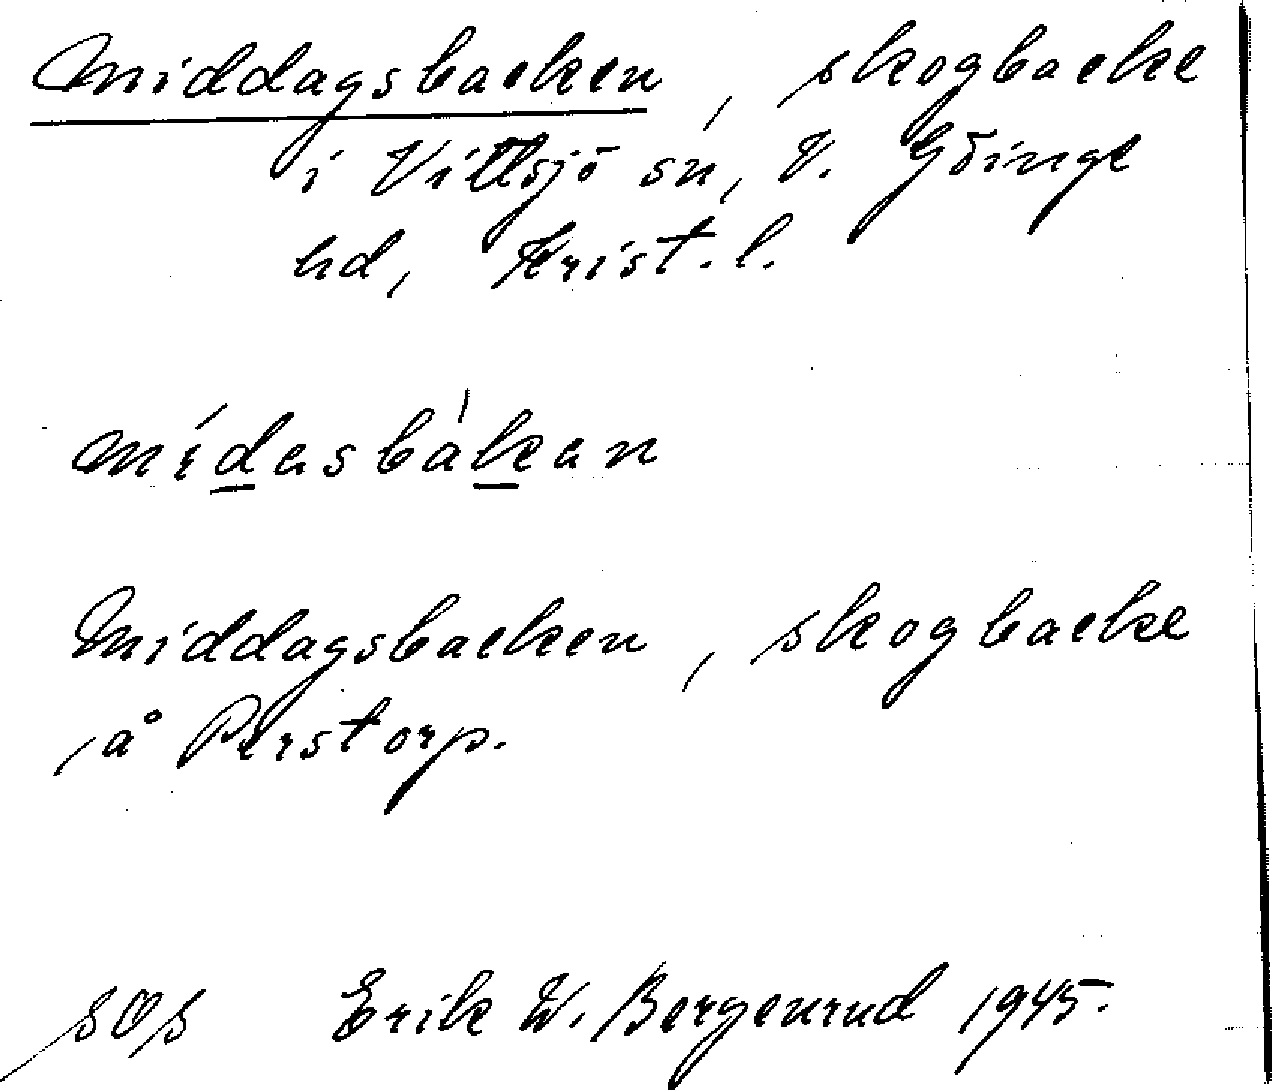 Middagsbacken, skogbacke
i Vittsjö sn, V. Göinge
hd, Krist. l.
mídasbàkan
Middagsbacken, skogbacke
å Perstorp.
SOS Erik W. Bergenrud 1945.